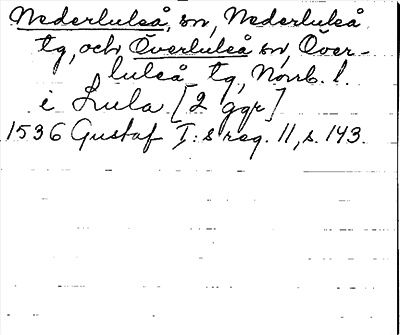 Nederluleå, sn, Nederluleå
tg, och Överluleå sn, Över-
luleå tg, Norrb. l.
i Lula [2 ggr]
1536 Gustaf I:s reg. 11, s. 143.